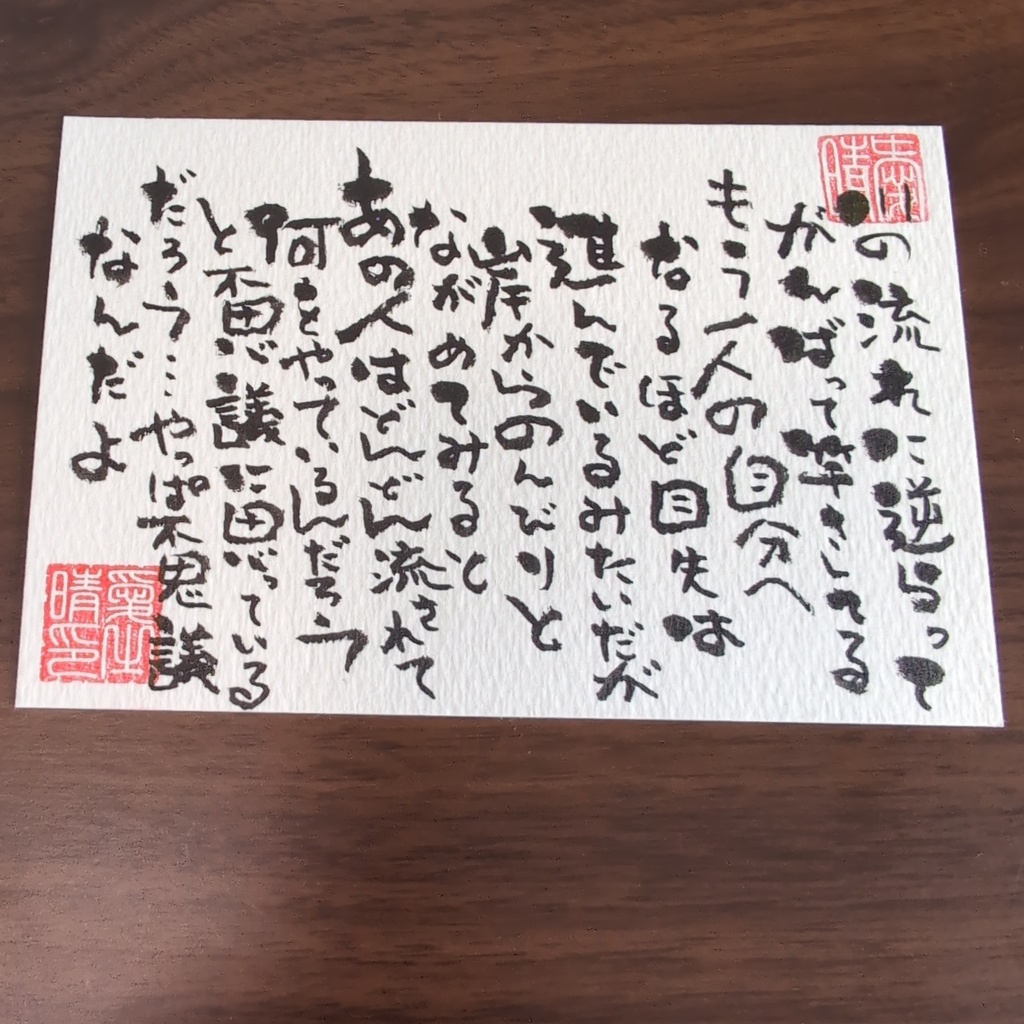 川の流れに逆らって
がんばって竿さしてる
もう一人の自分へ
なるほど は
進んでいるみたいだが
岸からのんびりと
ながめてみると
あの人はどんどん流されて
何をやっているんだろう
と不思議に思っている
だろう…やっぱ不思議
なんだよ